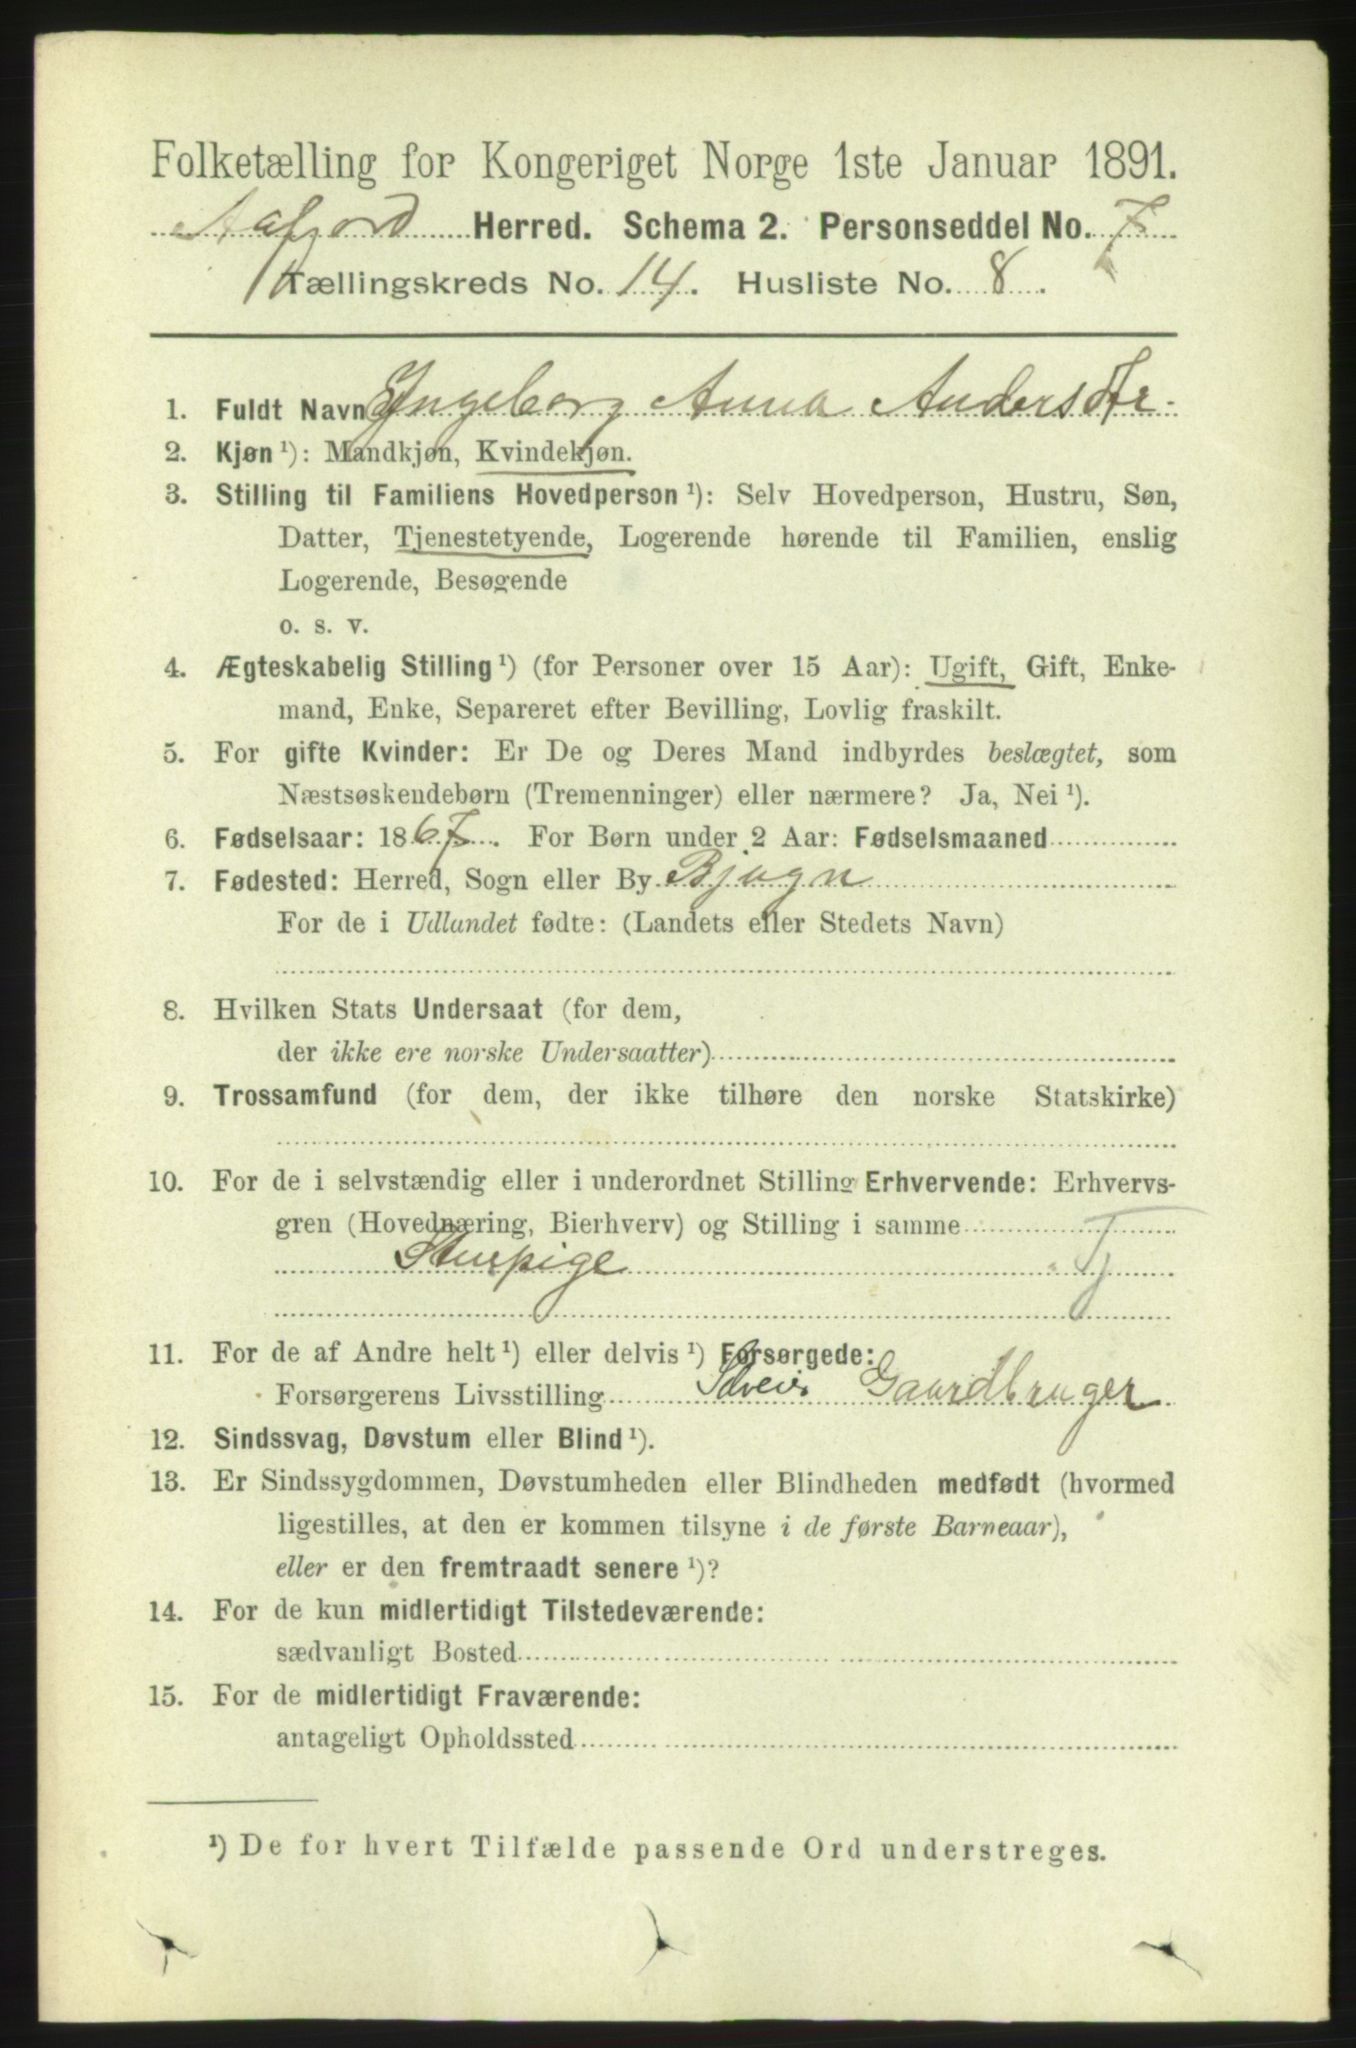 Folketælling for Kongeriget Norge 1ste Januar 1891.
Aafjord Herred. Schema 2. Personseddel No. 7
Tællingskreds No. 14. Husliste No. 8.
1. Fuldt Navn Ingeborg Anna Andersdtr.
2. Kjøn ¹): Mandkjøn, Kvindekjøn.
3. Stilling til Familiens Hovedperson ¹): Selv Hovedperson, Hustru, Søn,
Datter, Tjenestetyende, Logerende hørende til Familien, enslig
Logerende, Besøgende
o. s. v.
4. Ægteskabelig Stilling ¹) (for Personer over 15 Aar): Ugift, Gift, Enke-
mand, Enke, Separeret efter Bevilling, Lovlig fraskilt.
5. For gifte Kvinder: Er De og Deres Mand indbyrdes beslægtet, som
Næstsøskendebørn (Tremenninger) eller nærmere? Ja, Nei ¹).
6. Fødselsaar: 1867. For Børn under 2 Aar: Fødselsmaaned
7. Fødested: Herred, Sogn eller By Bjugn
For de i Udlandet fødte: (Landets eller Stedets Navn)
8. Hvilken Stats Undersaat (for dem,
der ikke ere norske Undersaatter)
9. Trossamfund (for dem, der ikke tilhøre den norske Statskirke)
10. For de i selvstændig eller i underordnet Stilling Erhvervende: Erhvervs-
gren (Hovednæring, Bierhverv) og Stilling i samme
Stuepige Tj
11. For de af Andre helt ¹) eller delvis ¹) Forsørgede:
Forsørgerens Livsstilling Selveier Gaardbruger
12. Sindssvag, Døvstum eller Blind ¹).
13. Er Sindssygdommen, Døvstumheden eller Blindheden medfødt (hvormed
ligestilles, at den er kommen tilsyne i de første Barneaar),
eller er den fremtraadt senere ¹)?
14. For de kun midlertidigt Tilstedeværende:
sædvanligt Bosted
15. For de midlertidigt Fraværende:
antageligt Opholdssted
¹) De for hvert Tilfælde passende Ord understreges.